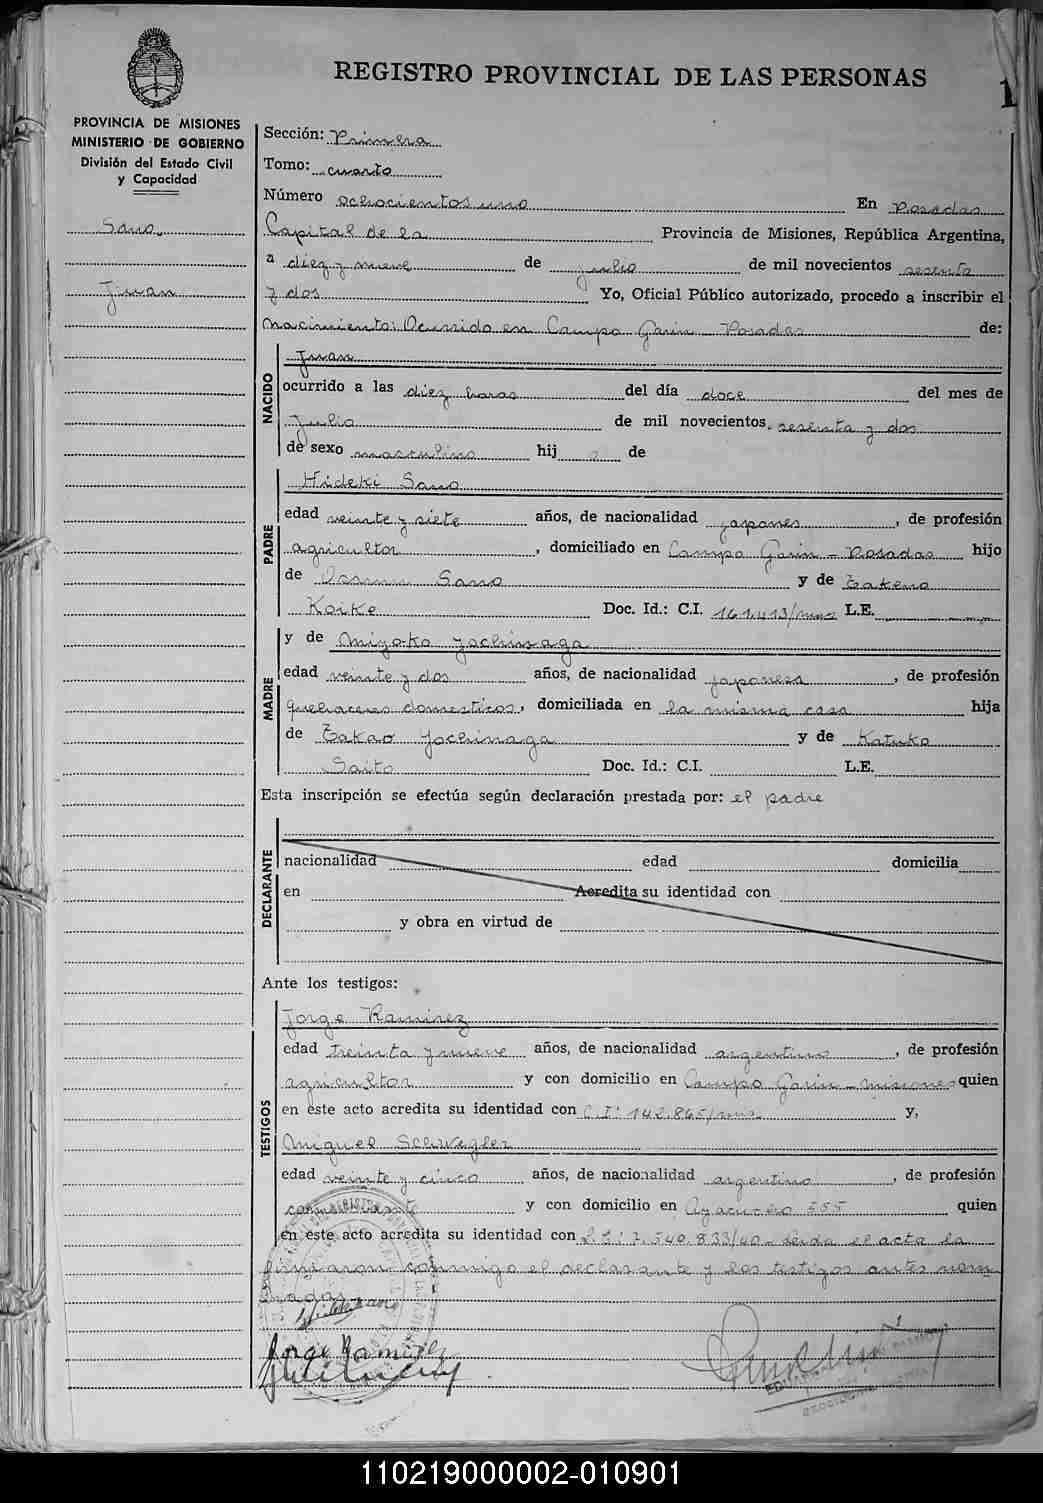 REGISTRO PROVINCIAL DE LAS PERSONAS
1
PROVINCIA DE MISIONES
MINISTERIO DE GOBIERNO
División del Estado Civil
y Capacidad
Sano
Juan
Sección: Primera
Tomo: cuarto
Número ochocientos uno En Posadas
Capital de la Provincia de Misiones, República Argentina,
a diez y nueve de julio de mil novecientos sesenta
y dos Yo, Oficial Público autorizado, procedo a inscribir el
nacimiento: Ocurrido en Campo Garin Posadas de:
NACIDO
Juan
ocurrido a las diez horas del día doce del mes de
Julio de mil novecientos sesenta y dos
de sexo masculino hijo de
PADRE
Hideki Sano
edad veinte y siete años, de nacionalidad japones, de profesión
agricultor, domiciliado en Campo Garin - Posadas hijo
de Osamu Sano y de Takeno
Koike Doc. Id.: C.I. 161.413/mnes L.E.
MADRE
y de Miyoko Yochinaga
edad veinte y dos años, de nacionalidad japonesa, de profesión
quehaceres domesticos, domiciliada en la misma casa hija
de Takao Yochinaga y de Katuko
Saito Doc. Id.: C.I. L.E.
Esta inscripción se efectúa según declaración prestada por: el padre
DECLARANTE
nacionalidad edad domicilia
en Acredita su identidad con
y obra en virtud de
Ante los testigos:
TESTIGOS
Jorge Ramirez
edad treinta y nueve años, de nacionalidad argentino, de profesión
agricultor y con domicilio en Campo Garin - misiones quien
en este acto acredita su identidad con C.I: 142.865/mns y,
Miguel Schwegler
edad veinte y cinco años, de nacionalidad argentino, de profesión
comerciante y con domicilio en Ayacucho 555 quien
en este acto acredita su identidad con L.E: 7.540.833/40 - leida el acta la
firmaron conmigo el declarante y los testigos antes nom
brados
Jorge Ramirez
110219000002-010901